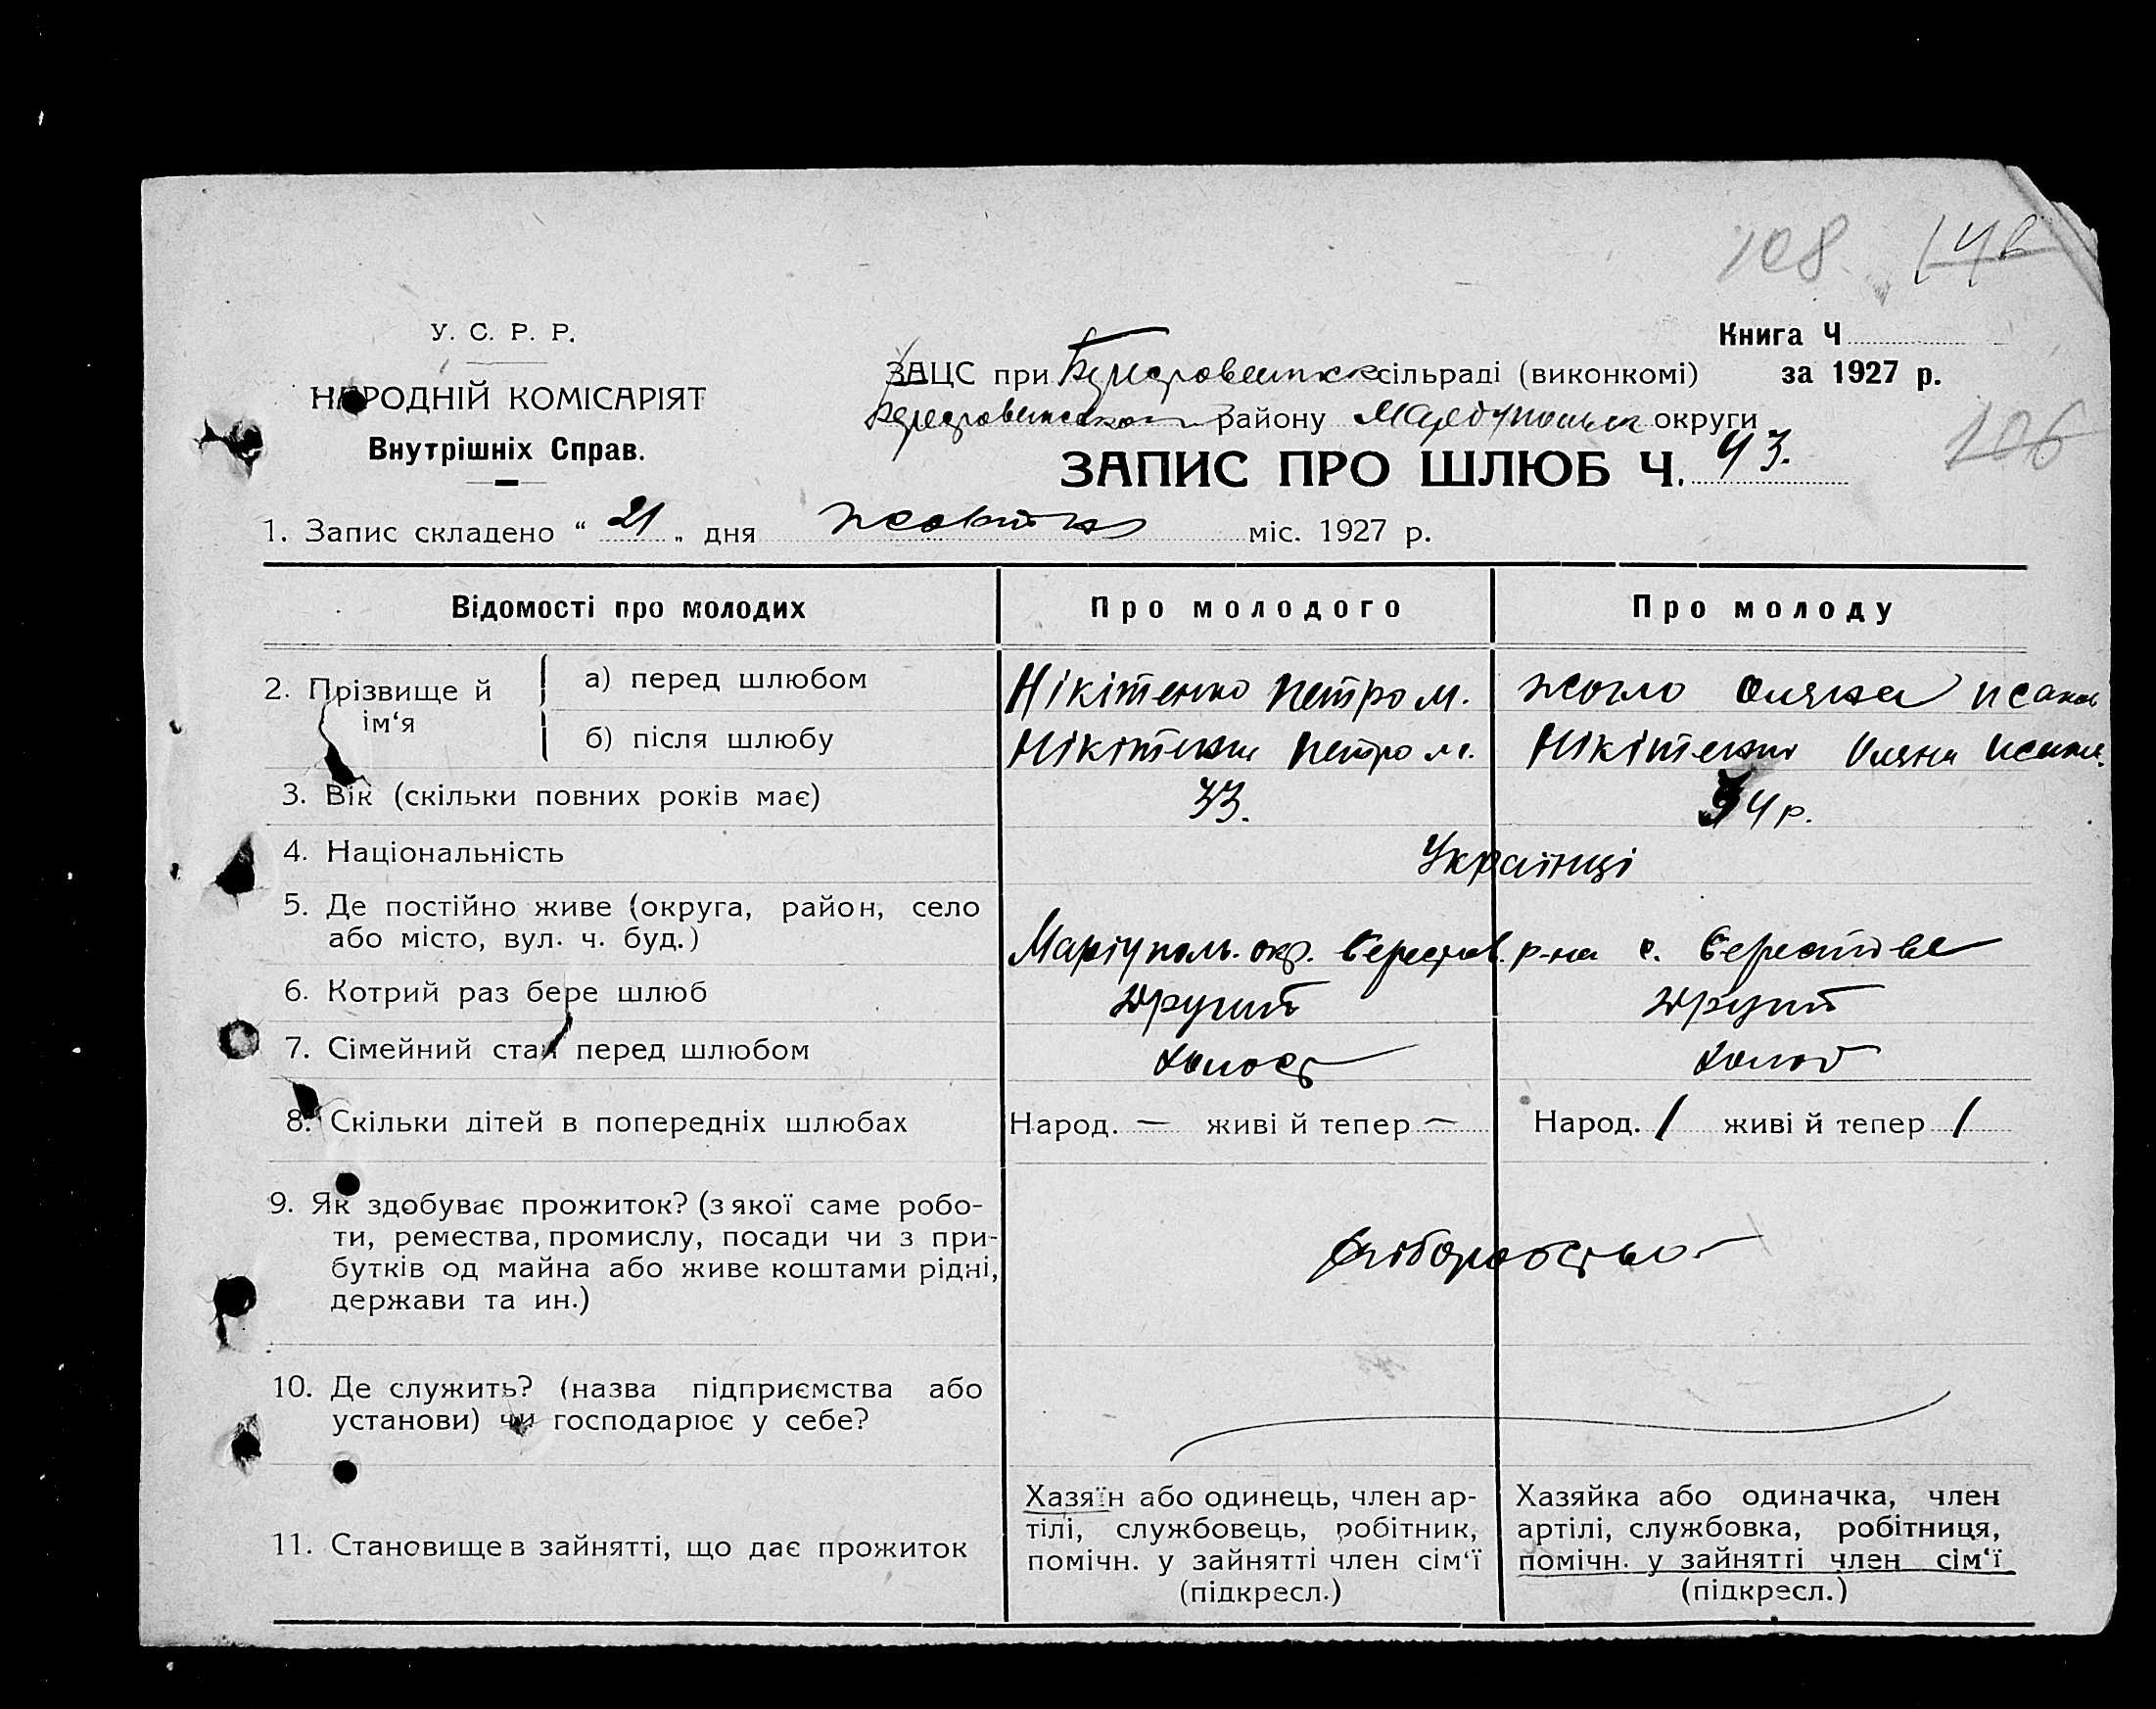 108 148
У. С. Р. Р.
Книга Ч
ЗАЦС при сільраді (виконкомі) за 1927 р.
НАРОДНІЙ КОМІСАРІЯТ
району округи
Внутрішніх Справ.
106
ЗАПИС ПРО ШЛЮБ Ч. 43.
1. Запис складено “ 21 „ дня жовтня міс. 1927 р.
Відомості про молодих Про молодого Про молоду
2. Прізвище й ім‘я а) перед шлюбом Нікітенко Петро М. Оляна
б) після шлюбу Нікітенко Петро М. Нікітенко Оляна
3. Вік (скільки повних років має) 33. 34 р.
4. Національність Українці
5. Де постійно живе (округа, район, село
або місто, вул. ч. буд.) Маріуполь. окр. Берестов. р-на с. Берестове
6. Котрий раз бере шлюб Другий Другий
7. Сімейний стан перед шлюбом холост
8. Скільки дітей в попередніх шлюбах Народ. — живі й тепер — Народ. 1 живі й тепер 1
9. Як здобуває прожиток? (з якої саме робо-
ти, ремества, промислу, посади чи з при-
бутків од майна або живе коштами рідні,
держави та ин.)
хліборобство
10. Де служить? (назва підприємства або
установи) чи господарює у себе?
11. Становище в зайнятті, що дає прожиток
Хазяїн або одинець, член ар-
тілі, службовець, робітник,
помічн. у зайнятті член сім‘ї
(підкресл.)
Хазяйка або одиначка, член
артілі, службовка, робітниця,
помічн. у зайнятті член сім‘ї
(підкресл.)